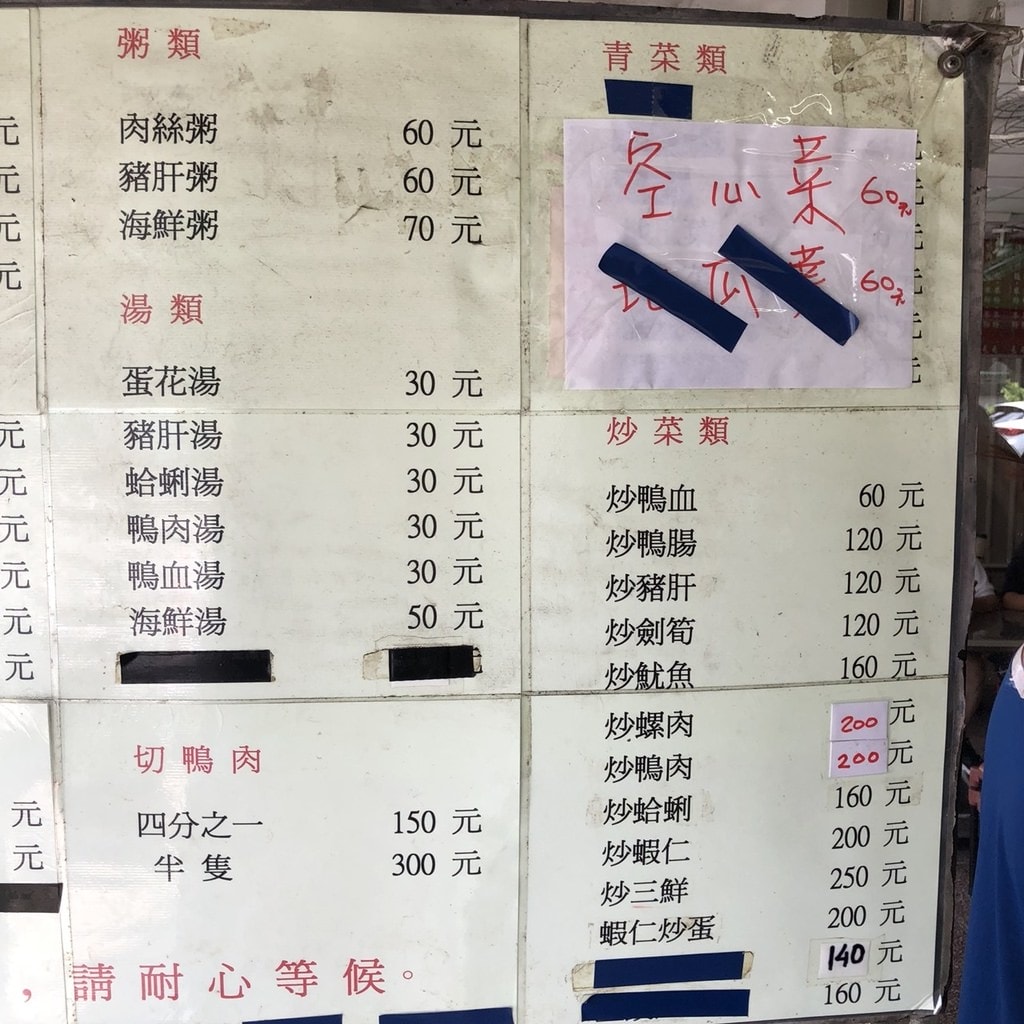 粥類
肉絲粥 60 元
豬肝粥 60 元
海鮮粥 70 元
湯類
蛋花湯 30 元
豬肝湯 30 元
蛤蜊湯 30 元
鴨肉湯 30 元
鴨血湯 30 元
海鮮湯 50 元
切鴨肉
四分之一 150 元
半隻 300 元
，請耐心等候。
青菜類
空心菜 60元
瓜 60元
炒菜類
炒鴨血 60 元
炒鴨腸 120 元
炒豬肝 120 元
炒劍筍 120 元
炒魷魚 160 元
炒螺肉 200 元
炒鴨肉 200 元
炒蛤蜊 160 元
炒蝦仁 200 元
炒三鮮 250 元
蝦仁炒蛋 200 元
140 元
160 元
元
元
元
元
元
元
元
元
元
元
元
元